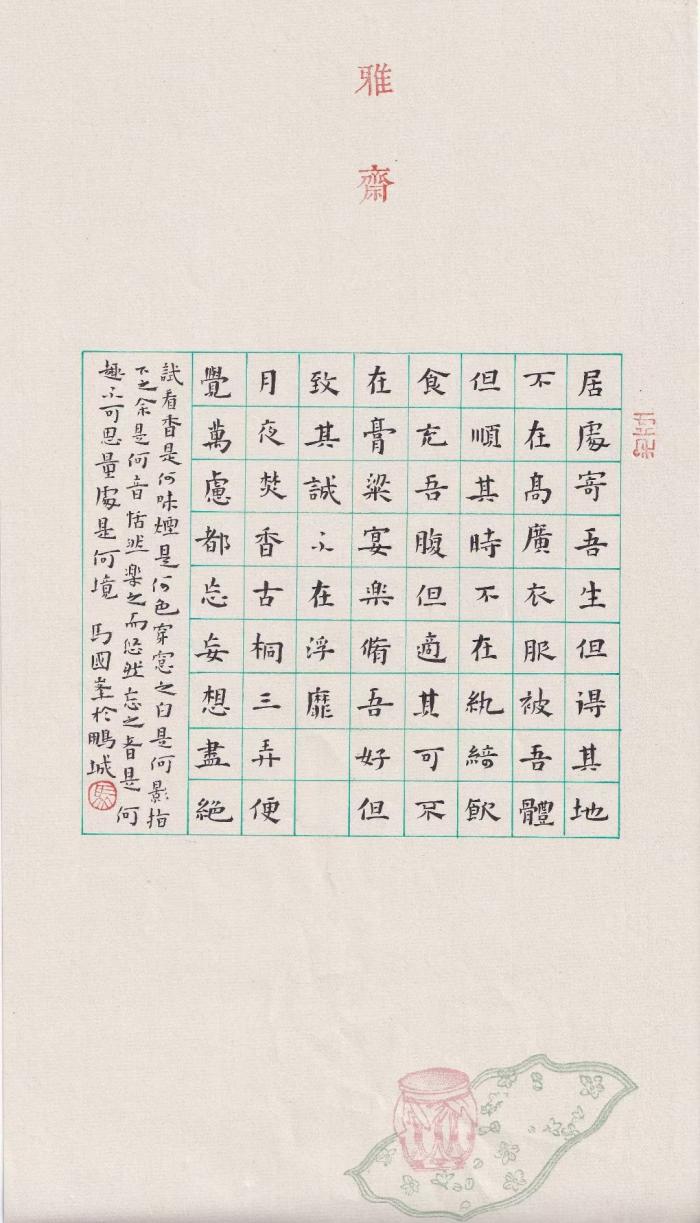 雅齋
居處寄吾生但得其地
不在高廣衣服被吾體
但順其時不在紈綺飲
食充吾腹但適其可不
在膏粱宴樂脩吾好但
致其誠不在浮靡
月夜焚香古桐三弄便
覺萬慮都忘妄想盡絕
試看香是何味煙是何色穿窓之白是何影指
下之余是何音恬然樂之而悠然忘之者是何
趣不可思量處是何境 馬國峯於鵬城
馬